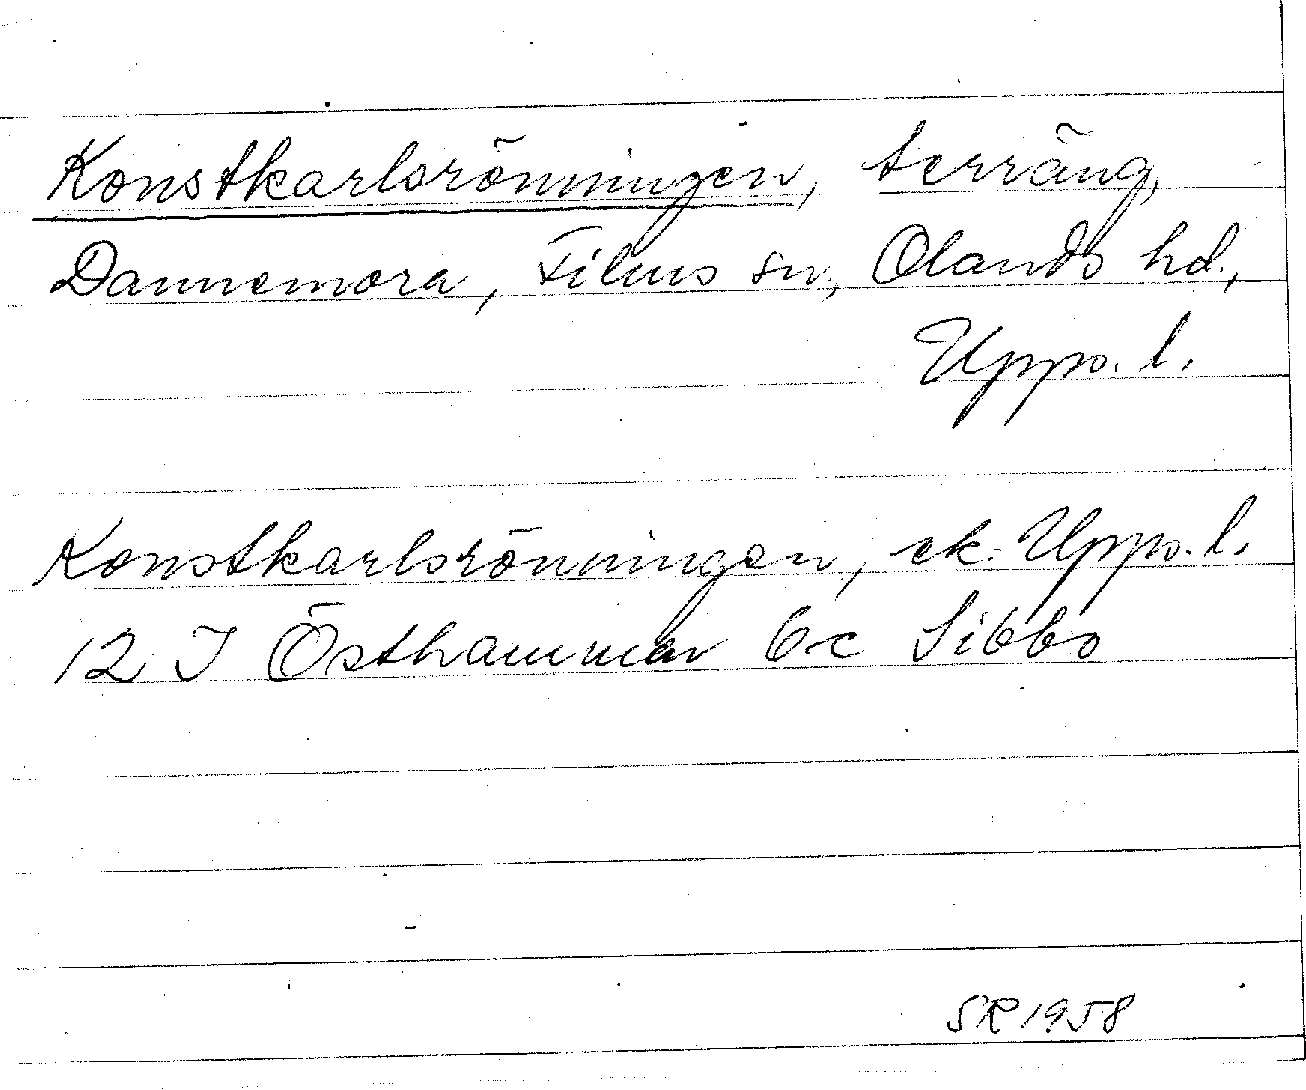 Konstkarlsrönningen, terräng,
Dannemora, Films sn, Olands hd.,
Upps. l.
Konstkarlsrönningen, ek. Upps. l.
12 I Östhammar 6c Sibbo
SR 1958